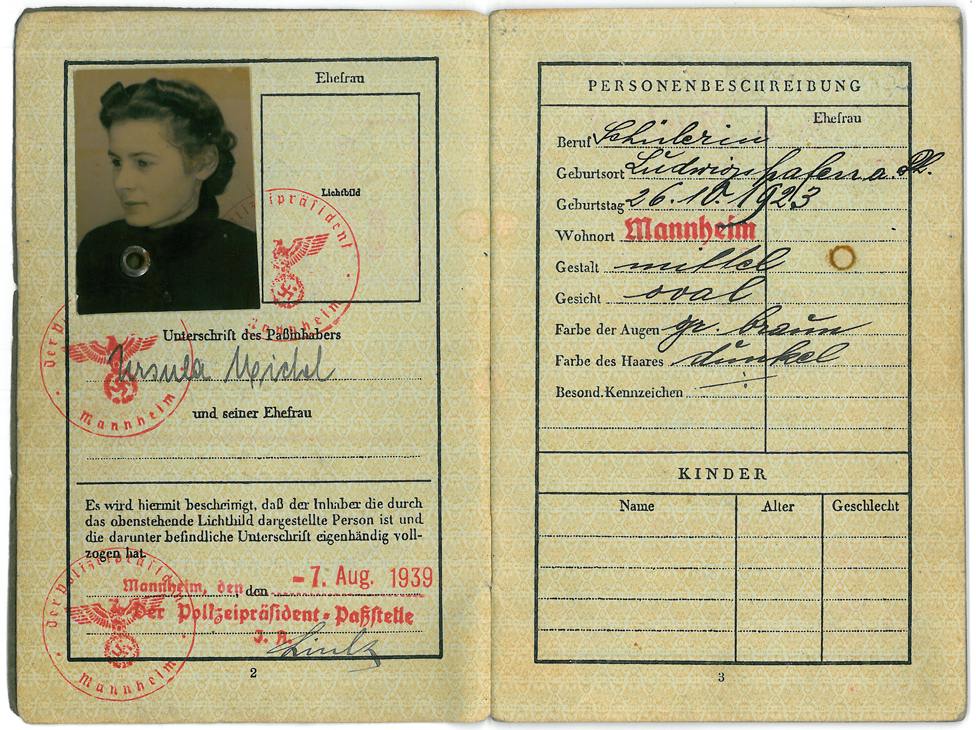 Ehefrau
Lichtbild
Der Polizeipräsident
Mannheim
Unterschrift des Paßinhabers
Ursula Michel
Der P
Mannheim
und seiner Ehefrau
Es wird hiermit bescheinigt, daß der Inhaber die durch
das obenstehende Lichtbild dargestellte Person ist und
die darunter befindliche Unterschrift eigenhändig voll-
zogen hat.
Mannheim, den den -7. Aug. 1939
Der Polizeipräsident-Paßstelle
J. A.
Der Polizeipräsident
Mannheim
2
PERSONENBESCHREIBUNG
Ehefrau
Beruf Schülerin
Geburtsort Ludwigshafen a. Rh.
Geburtstag 26.10.1923
Wohnort Mannheim
Gestalt mittel
Gesicht oval
Farbe der Augen gr. braun
Farbe des Haares dunkel
Besond. Kennzeichen
KINDER
Name Alter Geschlecht
3